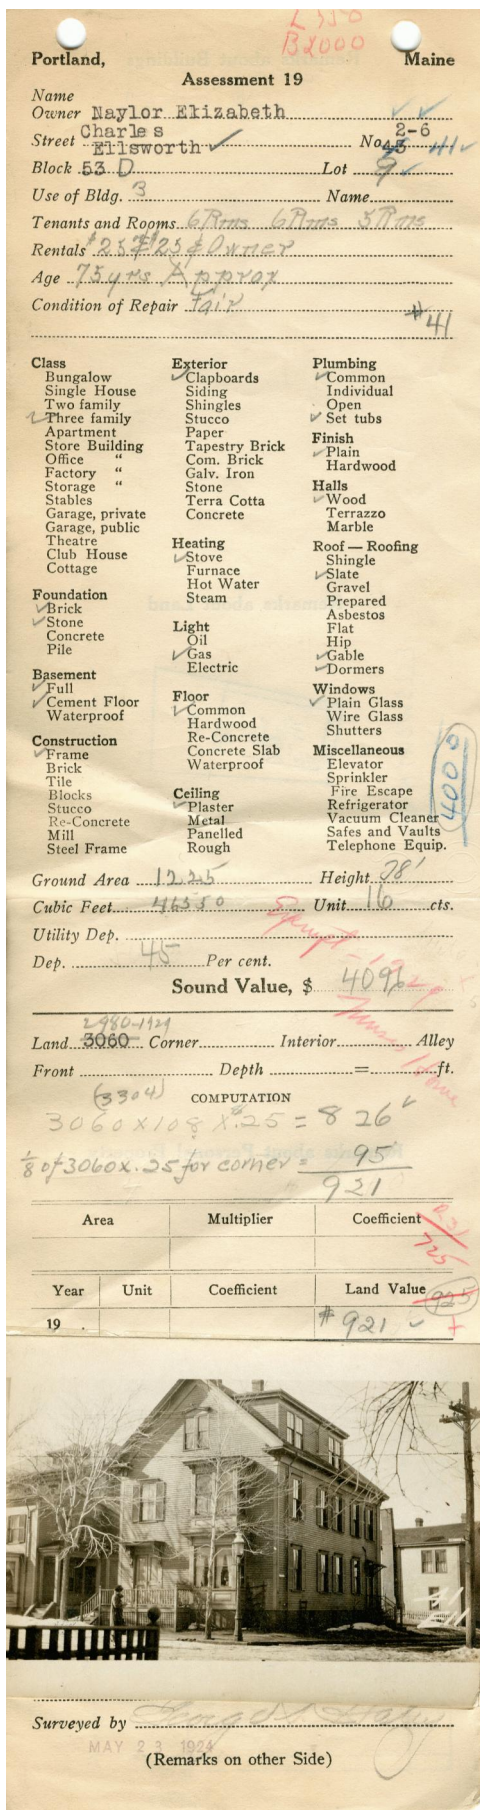 L 350
B 2000
Portland, Maine
Assessment 19
Name
Owner Naylor Elizabeth
Charles 2-6
Street Ellsworth No. 43 41
Block 53 D Lot 9
Use of Bldg. 3 Name
Tenants and Rooms 6 Rms 6 Rms 5 Rms
Rentals $25 $25 Owner
Age 75 yrs Approx
Condition of Repair Fair
#41
Class
Bungalow
Single House
Two family
Three family
Apartment
Store Building
Office "
Factory "
Storage "
Stables
Garage, private
Garage, public
Theatre
Club House
Cottage
Foundation
Brick
Stone
Concrete
Pile
Basement
Full
Cement Floor
Waterproof
Construction
Frame
Brick
Tile
Blocks
Stucco
Re-Concrete
Mill
Steel Frame
Exterior
Clapboards
Siding
Shingles
Stucco
Paper
Tapestry Brick
Com. Brick
Galv. Iron
Stone
Terra Cotta
Concrete
Heating
Stove
Furnace
Hot Water
Steam
Light
Oil
Gas
Electric
Floor
Common
Hardwood
Re-Concrete
Concrete Slab
Waterproof
Ceiling
Plaster
Metal
Panelled
Rough
Plumbing
Common
Individual
Open
Set tubs
Finish
Plain
Hardwood
Halls
Wood
Terrazzo
Marble
Roof — Roofing
Shingle
Slate
Gravel
Prepared
Asbestos
Flat
Hip
Gable
Dormers
Windows
Plain Glass
Wire Glass
Shutters
Miscellaneous
Elevator
Sprinkler
Fire Escape
Refrigerator
Vacuum Cleaner
Safes and Vaults
Telephone Equip.
4000
Ground Area 1225 Height 38'
Cubic Feet 46550 Unit 16 cts.
Utility Dep.
Dep. 45 Per cent.
Exempt - 1929
Sound Value, $ 4096
2980-1929
Land 3060 Corner Interior Alley
Front Depth = ft.
(3304)
COMPUTATION
3060 x 108 x .25 = 826
1/8 of 3060 x .25 for corner = 95
921
Area Multiplier Coefficient
725
Year Unit Coefficient Land Value 925
19 . # 921
Surveyed by
MAY 23 1924
(Remarks on other Side)